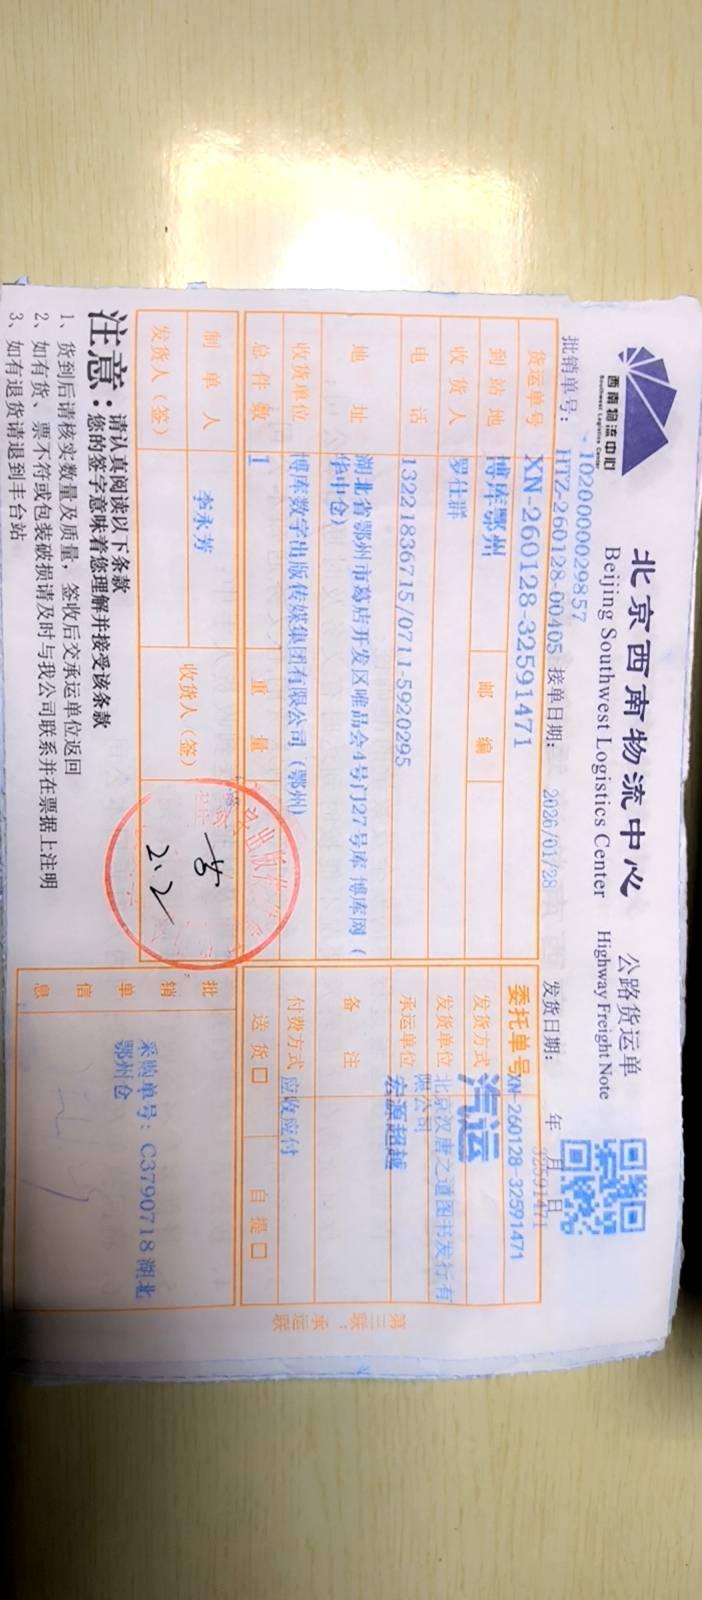 西南物流中心
Southwest Logistics Center
北京西南物流中心
Beijing Southwest Logistics Center
公路货运单
Highway Freight Note
批销单号：
-1020000029857
HTZ-260128-00405
接单日期：
2026/01/28
发货日期： 年 月 日
32591471
货运单号 XN-260128-32591471
委托单号 XN-260128-32591471
到站地 博库鄂州 邮编
发货方式 汽运
收货人 罗仕群
发货单位 北京汉唐之道图书发行有
限公司
电话 13221836715/0711-5920295
承运单位 宏源超越
地址 湖北省鄂州市葛店开发区唯品会4号门27号库 博库网（
华中仓）
备注
收货单位 博库数字出版传媒集团有限公司（鄂州）
付费方式 应收应付
总件数 1 重量
送货口 自提口
制单人 李永芳 收货人（签）
发货人（签）
2.2
批销单信息
采购单号：C3790718 湖北
鄂州仓
第三联：承运联
注意：
请认真阅读以下条款
您的签字意味着您理解并接受该条款
1、货到后请核实数量及质量，签收后交承运单位返回
2、如有货、票不符或包装破损请及时与我公司联系并在票据上注明
3、如有退货请退到丰台站